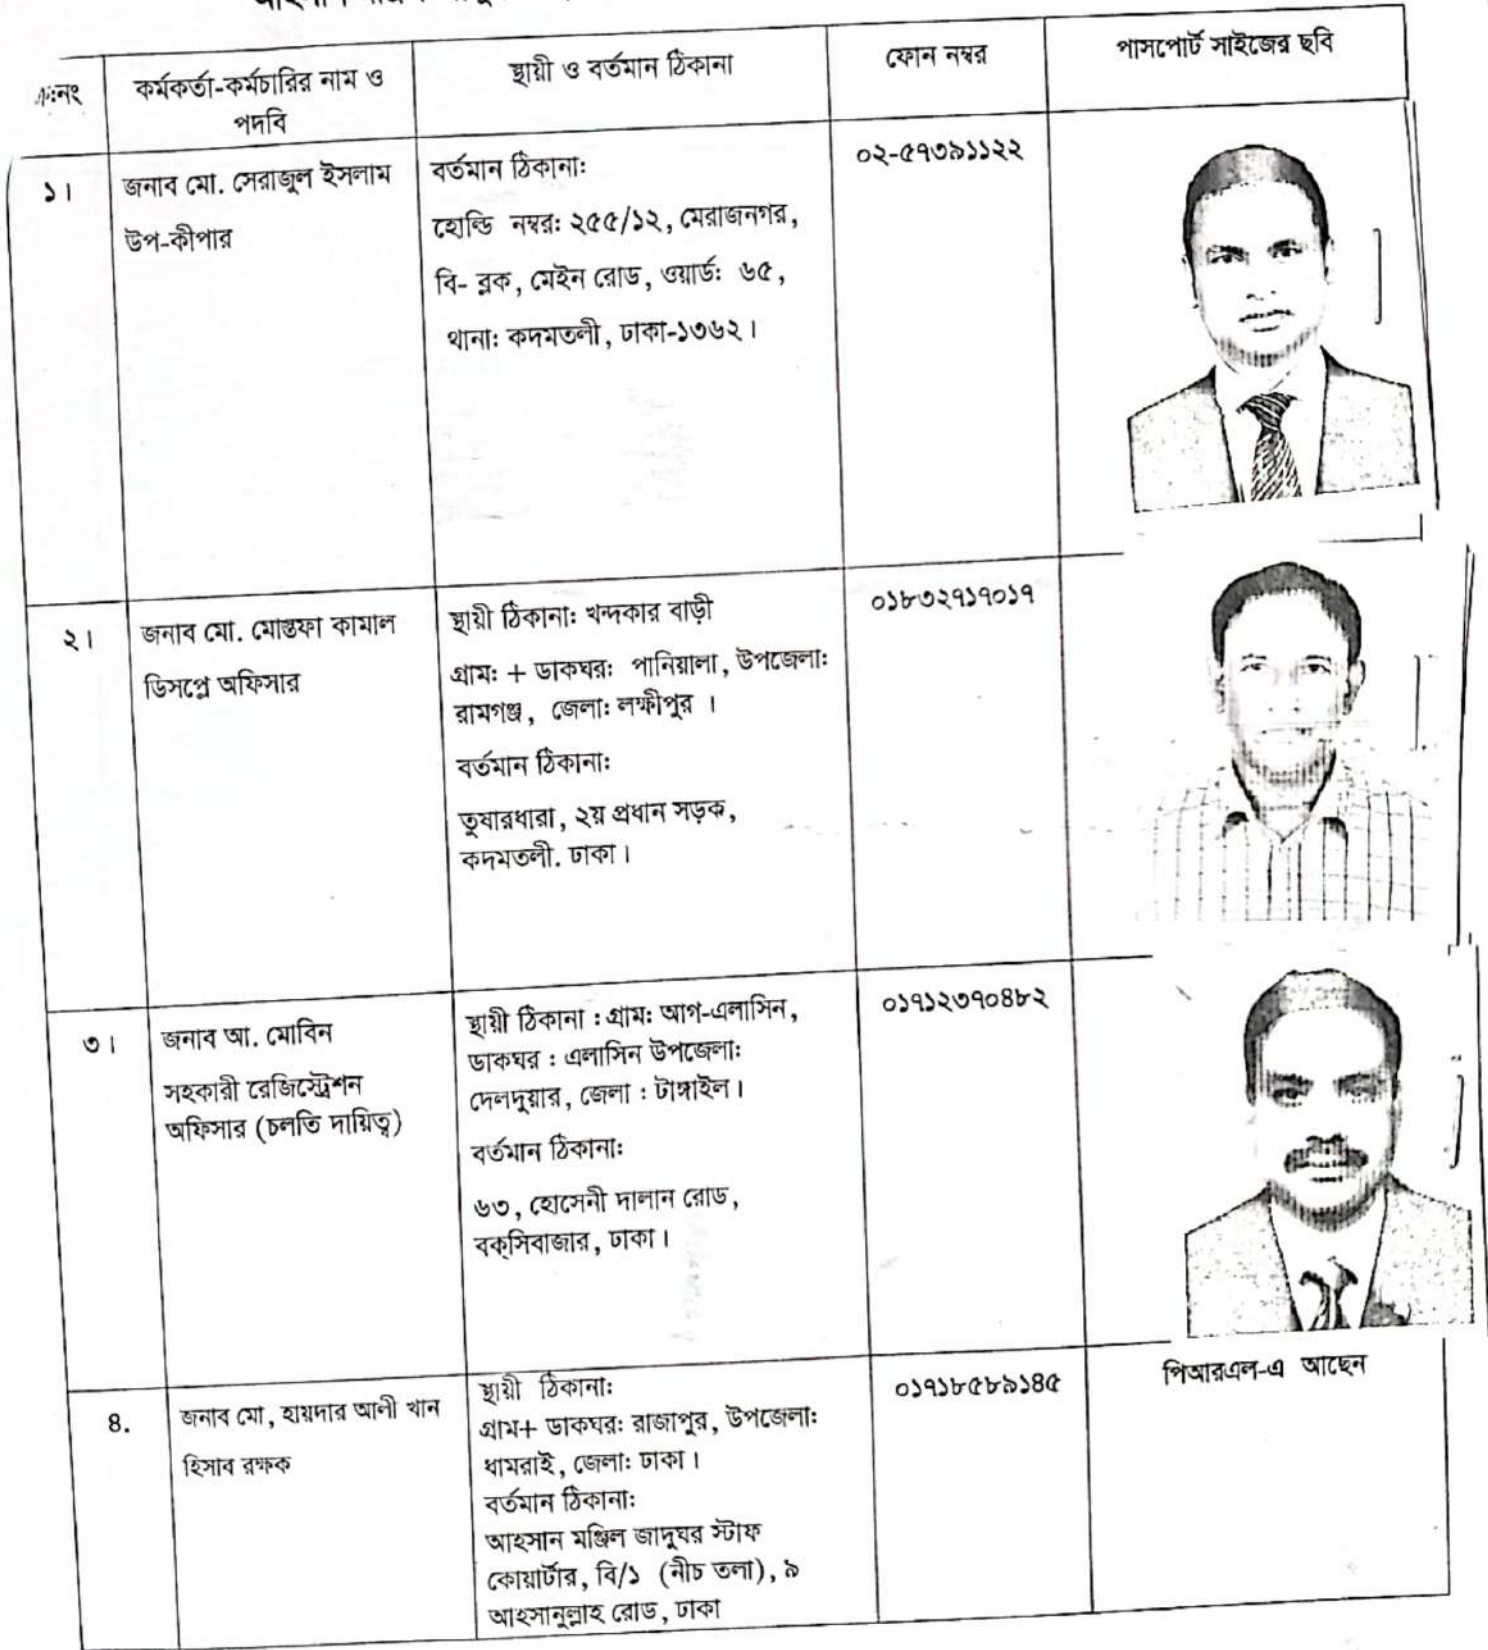 ক্রঃনং
কর্মকর্তা-কর্মচারির নাম ও
পদবি
স্থায়ী ও বর্তমান ঠিকানা
ফোন নম্বর
পাসপোর্ট সাইজের ছবি
১।
জনাব মো. সেরাজুল ইসলাম
উপ-কীপার
বর্তমান ঠিকানাঃ
হোল্ডি নম্বরঃ ২৫৫/১২, মেরাজনগর,
বি- ব্লক, মেইন রোড, ওয়ার্ডঃ ৬৫,
থানাঃ কদমতলী, ঢাকা-১৩৬২।
০২-৫৭৩৯১১২২
২।
জনাব মো. মোস্তফা কামাল
ডিসপ্লে অফিসার
স্থায়ী ঠিকানাঃ খন্দকার বাড়ী
গ্রামঃ + ডাকঘরঃ পানিয়ালা, উপজেলাঃ
রামগঞ্জ, জেলাঃ লক্ষীপুর ।
বর্তমান ঠিকানাঃ
তুষারধারা, ২য় প্রধান সড়ক,
কদমতলী. ঢাকা।
০১৮৩২৭১৭০১৭
৩।
জনাব আ. মোবিন
সহকারী রেজিস্ট্রেশন
অফিসার (চলতি দায়িত্ব)
স্থায়ী ঠিকানা : গ্রামঃ আগ-এলাসিন,
ডাকঘর : এলাসিন উপজেলাঃ
দেলদুয়ার, জেলা : টাঙ্গাইল।
বর্তমান ঠিকানাঃ
৬৩, হোসেনী দালান রোড,
বক্‌সিবাজার, ঢাকা।
০১৭১২৩৭০৪৮২
8.
জনাব মো, হায়দার আলী খান
হিসাব রক্ষক
স্থায়ী ঠিকানাঃ
গ্রাম+ ডাকঘরঃ রাজাপুর, উপজেলাঃ
ধামরাই, জেলাঃ ঢাকা।
বর্তমান ঠিকানাঃ
আহসান মঞ্জিল জাদুঘর স্টাফ
কোয়ার্টার, বি/১ (নীচ তলা), ৯
আহসানুল্লাহ রোড, ঢাকা
০১৭১৮৫৮৯১৪৫
পিআরএল-এ আছেন